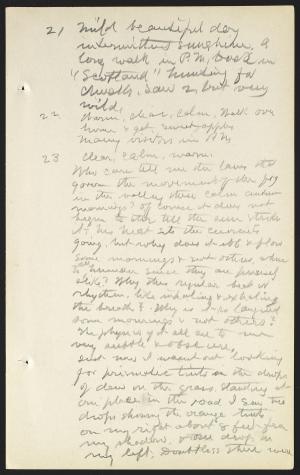 21 Mild beautiful day
intermittent sunshine. A
long walk in P.M. back in
"Scotland" hunting for
chucks, saw 2, but very
wild.
22. Warm, clear, calm. Walk over
home & get sweet apples
many visitors in P.M.
23 Clear, calm, warm.
Who can tell me the laws that
govern the movement of the fog
in the valley these calm autumn
mornings? Of course it does not
begin to stir till the sun strikes
it; his heat sets the currents
going, but why does it ebb & flow
some mornings & not others, when
all
to seeming they are precisely
alike? Why this regular beat or
rhythm, like inhaling & exhaling
the breath? Why is it so languid
some mornings & not others?
The physics of it all are to me
very subtle & obscure.
Just now I went out looking
for prismatic tints in the drops
of dew on the grass. Standing at
one place in the road I saw the
drops showing the orange tints
on my right about 8 feet from
my shadow, & one drop on
my left. Doubtless there were